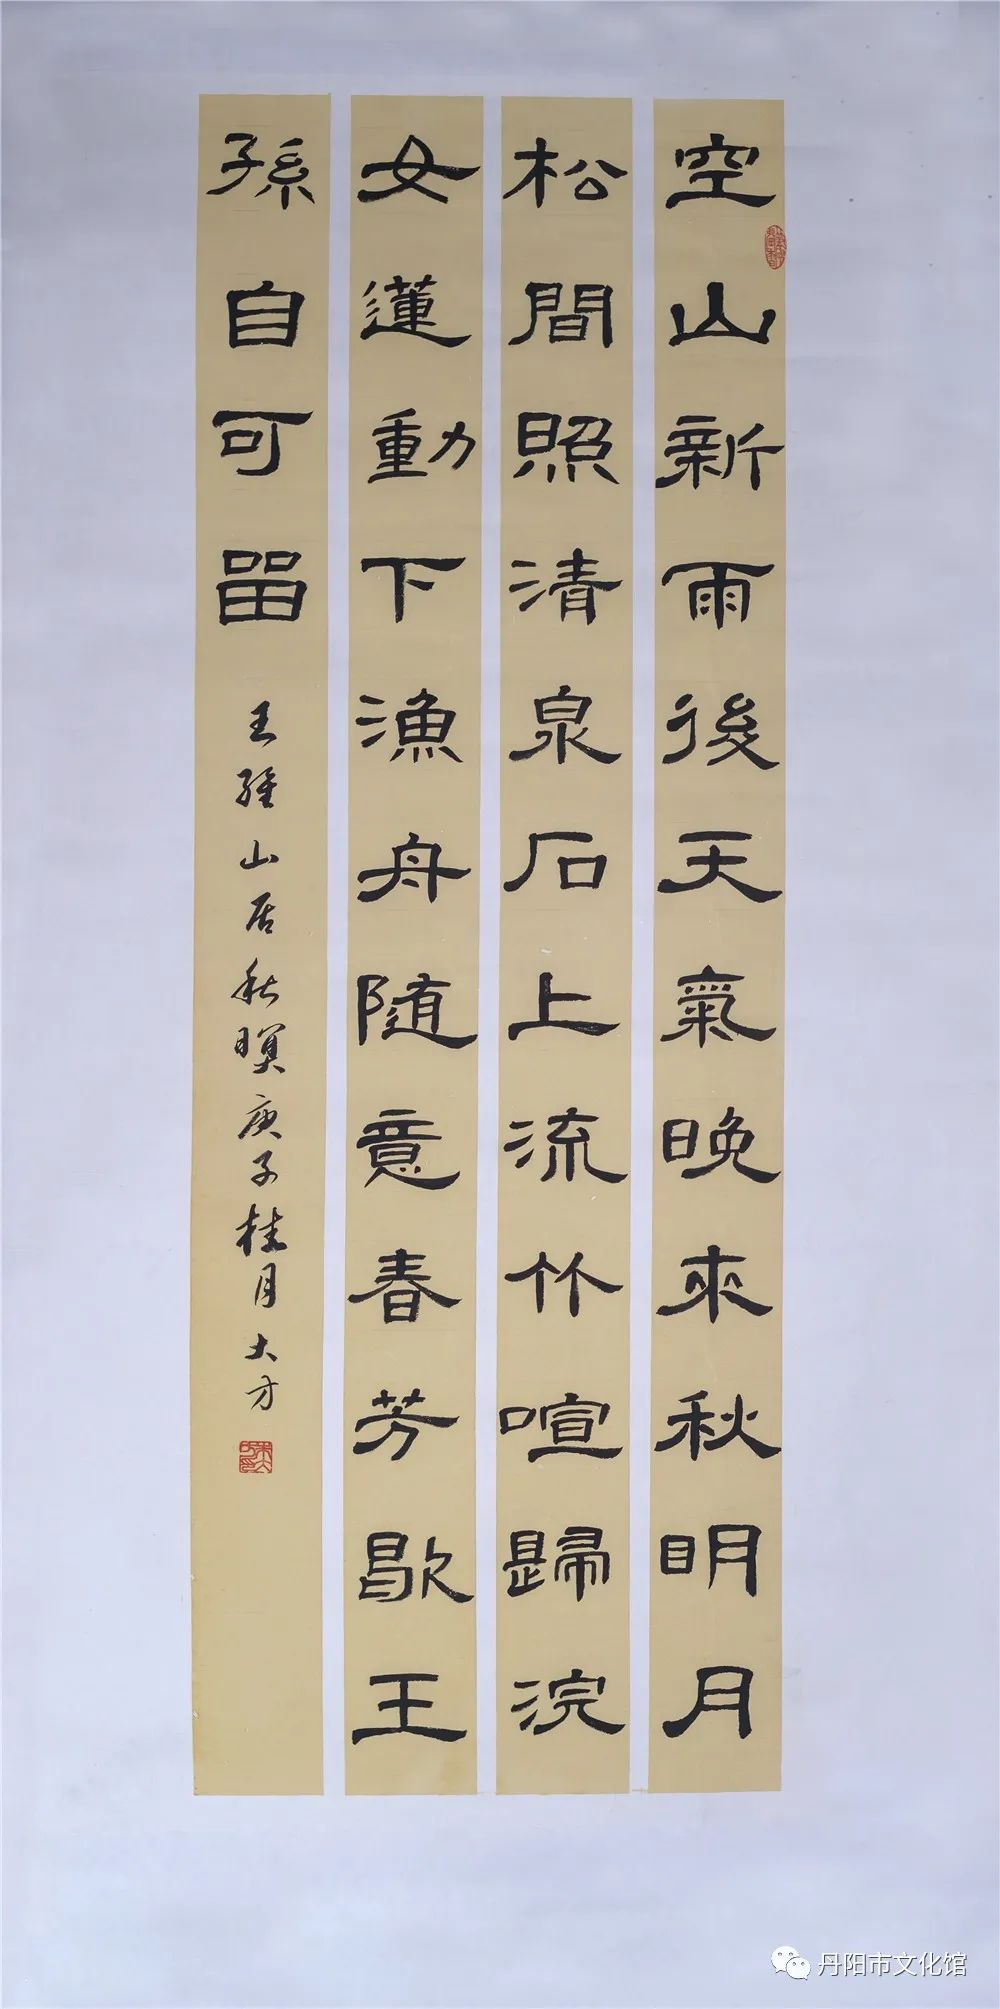 空山新雨後天氣晚來秋明月
松間照清泉石上流竹喧歸浣
女蓮動下漁舟隨意春芳歇王
孫自可留
王維山居秋暝庚子桂月大方
丹阳市文化馆